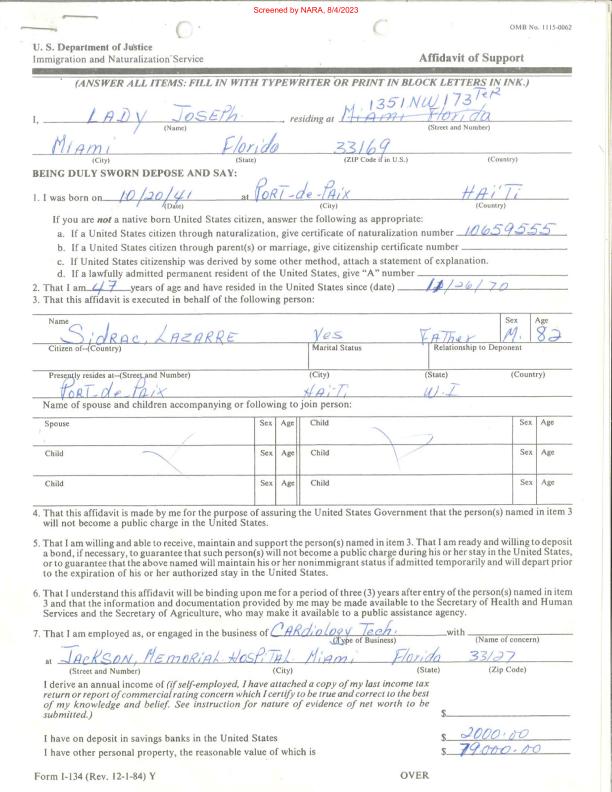 Screened by NARA, 8/4/2023
OMB No. 1115-0062
U. S. Department of Justice
Immigration and Naturalization Service
Affidavit of Support
(ANSWER ALL ITEMS: FILL IN WITH TYPEWRITER OR PRINT IN BLOCK LETTERS IN INK.)
I, LADY JOSEPH, residing at 1351 NW 173 Ter Miami Florida
(Name) (Street and Number)
Miami Florida 33169
(City) (State) (ZIP Code if in U.S.) (Country)
BEING DULY SWORN DEPOSE AND SAY:
1. I was born on 10/20/41 at PORT-de-PAIX HAiTi
(Date) (City) (Country)
If you are not a native born United States citizen, answer the following as appropriate:
a. If a United States citizen through naturalization, give certificate of naturalization number 10659555
b. If a United States citizen through parent(s) or marriage, give citizenship certificate number
c. If United States citizenship was derived by some other method, attach a statement of explanation.
d. If a lawfully admitted permanent resident of the United States, give "A" number
2. That I am 47 years of age and have resided in the United States since (date) 11/26/70
3. That this affidavit is executed in behalf of the following person:
Name Sex Age
SiDRAC, LAZARRE Yes FATHer M. 82
Citizen of--(Country) Marital Status Relationship to Deponent
Presently resides at--(Street and Number) (City) (State) (Country)
PORT-de-PAiX HAiTi W.I
Name of spouse and children accompanying or following to join person:
Spouse Sex Age Child Sex Age
Child Sex Age Child Sex Age
Child Sex Age Child Sex Age
4. That this affidavit is made by me for the purpose of assuring the United States Government that the person(s) named in item 3
will not become a public charge in the United States.
5. That I am willing and able to receive, maintain and support the person(s) named in item 3. That I am ready and willing to deposit
a bond, if necessary, to guarantee that such person(s) will not become a public charge during his or her stay in the United States,
or to guarantee that the above named will maintain his or her nonimmigrant status if admitted temporarily and will depart
prior to the expiration of his or her authorized stay in the United States.
6. That I understand this affidavit will be binding upon me for a period of three (3) years after entry of the person(s) named in item
3 and that the information and documentation provided by me may be made available to the Secretary of Health and Human
Services and the Secretary of Agriculture, who may make it available to a public assistance agency.
7. That I am employed as, or engaged in the business of CARdiology Tech. with
(Type of Business) (Name of concern)
at JACKSON, MEMORIAL HOSPITAL Miami Florida 33127
(Street and Number) (City) (State) (Zip Code)
I derive an annual income of (if self-employed, I have attached a copy of my last income tax
return or report of commercial rating concern which I certify to be true and correct to the best
of my knowledge and belief. See instruction for nature of evidence of net worth to be
submitted.) $
I have on deposit in savings banks in the United States $ 2000.00
I have other personal property, the reasonable value of which is $ 79000.00
Form I-134 (Rev. 12-1-84) Y OVER